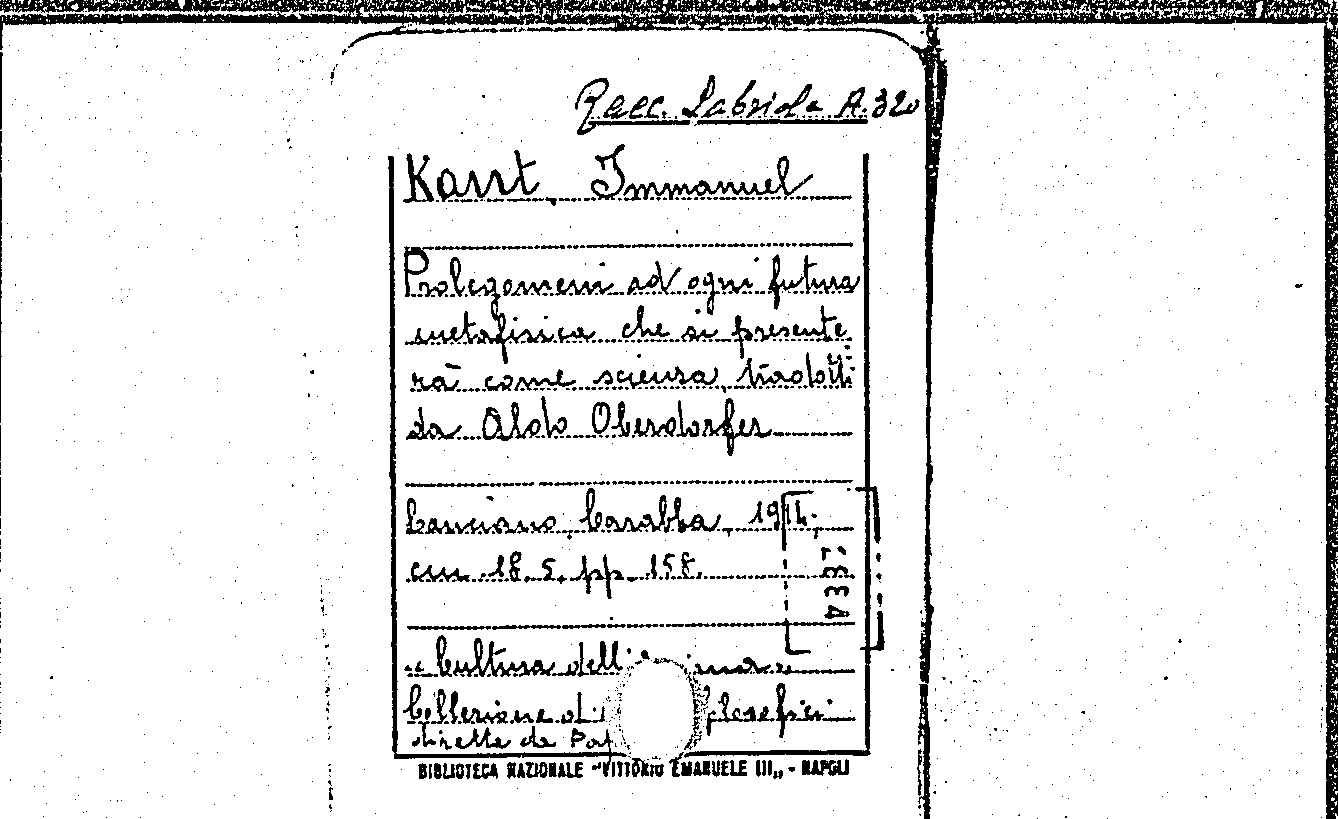 Racc. Labriola A. 320
Kant, Immanuel
Prolegomeni ad ogni futura
metafisica che si presente
rà come scienza, tradotti
da Aldo Oberdorfer
Lanciano, Carabba, 191
cm. 18. 5. pp. 158.
"Cultura dell'
Collezione di filosofici
diretta da
BIBLIOTECA NAZIONALE "VITTORIO EMANUELE III„ - NAPOLI